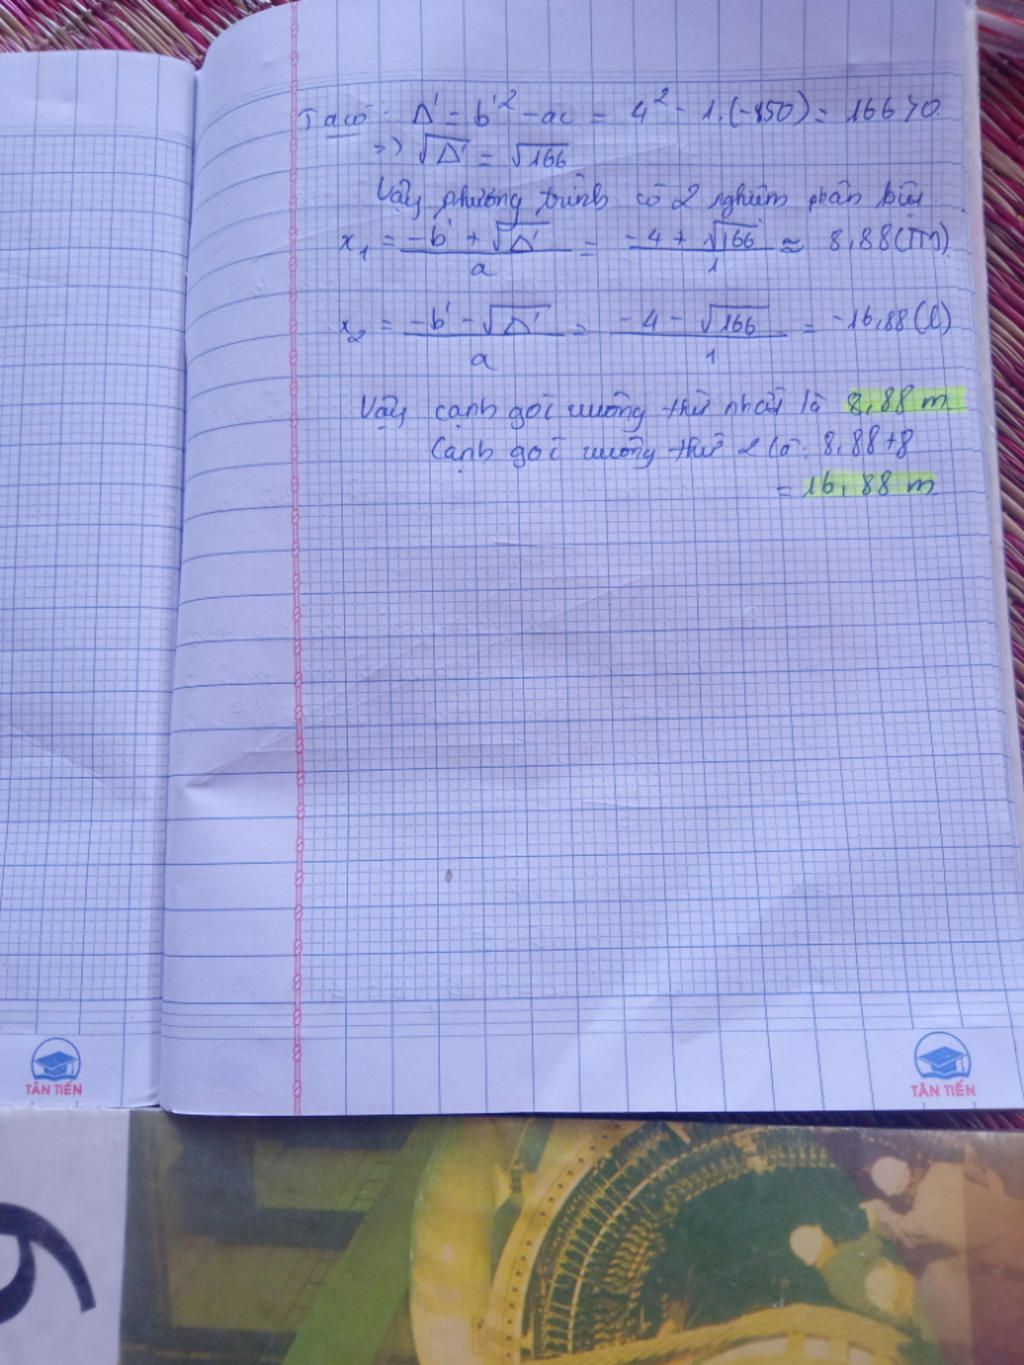 Ta có: Δ' = b'² - ac = 4² - 1.(-150) = 166 > 0.
=> √Δ' = √166
Vậy phương trình có 2 nghiệm phân biệt.
x₁ = (-b' + √Δ')/a = (-4 + √166)/1 ≈ 8,88 (TM).
x₂ = (-b' - √Δ')/a = (-4 - √166)/1 = -16,88 (l)
Vậy cạnh góc vuông thứ nhất là 8,88 m
Cạnh góc vuông thứ 2 là: 8,88 + 8
= 16,88 m
TÂN TIẾN
TÂN TIẾN